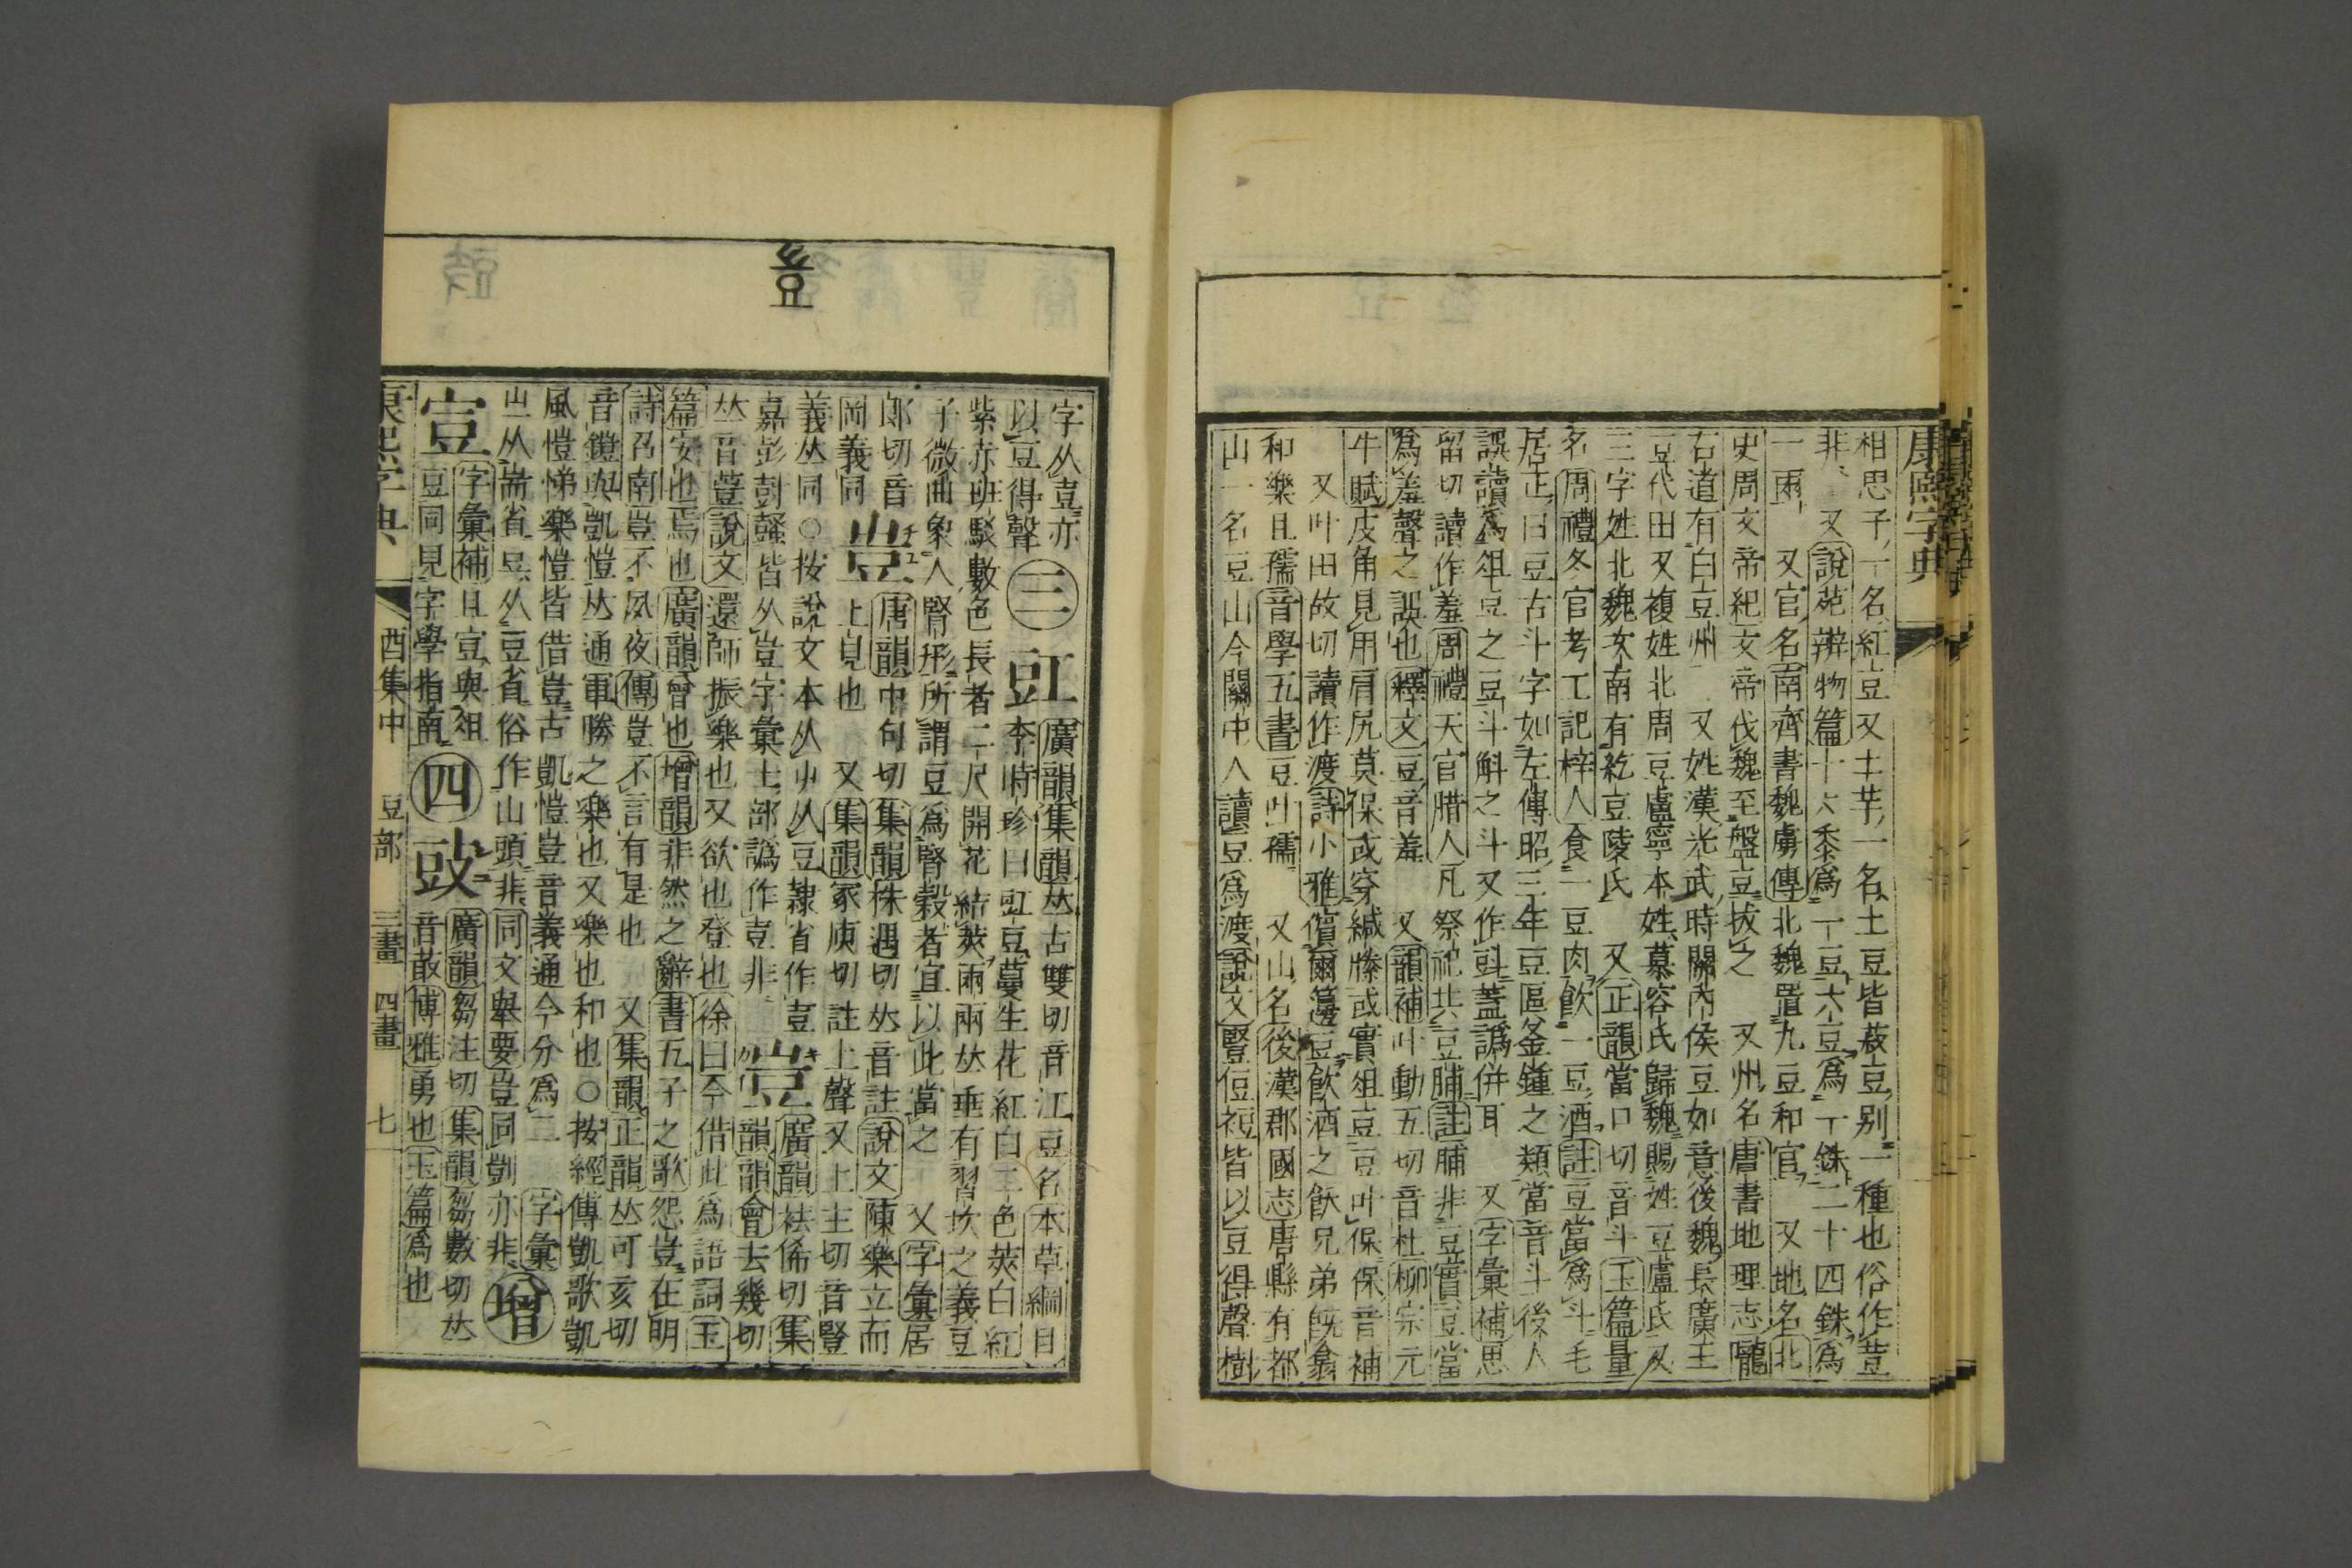 康熙字典
相思子一名紅豆又土芋一名土豆皆菽豆別一種也俗作荳
非 又說苑辨物篇十六黍爲一豆六豆爲一銖二十四銖爲
一兩 又官名南齊書魏虜傳北魏置九豆和官 又地名北
史周文帝紀文帝伐魏至盤豆拔之 又州名唐書地理志隴
右道有白豆州 又姓漢光武時關內侯豆如意後魏長廣王
豆代田又複姓北周豆盧寧本姓慕容氏歸魏賜姓豆盧氏又
三字姓北魏次南有紇豆陵氏 又正韻當口切音斗玉篇量
名周禮冬官考工記梓人食一豆肉飮一豆酒註豆當爲斗毛
居正曰豆古斗字如左傳昭三年豆區釜鍾之類當音斗後人
誤讀爲俎豆之豆斗斛之斗又作㪷蓋譌併耳 又字彙補思
留切讀作羞周禮天官腊人凡祭祀共豆脯註脯非豆實豆當
爲羞聲之誤也釋文豆音羞 又韻補叶動五切音杜柳宗元
牛賦皮角見用肩尻莫保或穿緘縢或實俎豆豆叶保保音補
又叶田故切讀作渡詩小雅儐爾籩豆飮酒之飫兄弟旣翕
和樂且孺音學五書豆叶孺 又山名後漢郡國志唐縣有都
山一名豆山今關中人讀豆爲渡說文豎侸裋皆以豆得聲樹
字从壴亦
以豆得聲 三 豇 廣韻集韻𠀤古雙切音江豆名本草綱目
李時珍曰豇豆蔓生花紅白二色莢白紅
紫赤班駁數色長者二尺開花結莢兩兩𠀤垂有習坎之義豆
子微曲象人腎形所謂豆爲腎穀者宜以此當之 又字彙居
郎切音
岡義同 壴 唐韻中句切集韻株遇切𠀤音註說文陳樂立而
上見也 又集韻冢庾切註上聲又上主切音豎
義𠀤同○按說文本从屮从豆隸省作壴
嘉彭彭鼞皆从豈字彙土部譌作壴非 豈 廣韻袪俙切集
韻韻會去幾切
𠀤音說文還師振樂也又欲也登也徐曰今借此爲語詞玉
篇安也焉也廣韻曾也增韻非然之辭書五子之歌怨豈在明
詩召南豈不夙夜傳豈不言有是也 又集韻正韻𠀤可亥切
音鎧與凱愷𠀤通軍勝之樂也又樂也和也○按經傳凱歌凱
風愷悌樂愷皆借豈古凱愷豈音義通今分爲二 字彙
山从耑省豆从豆省俗作山頭非同文舉要豈同剴亦非 增
字彙補且與俎
豆同見字學指南 四 廣韻芻注切集韻芻數切𠀤
音菆博雅勇也玉篇爲也
康熙字典 酉集中 豆部 三畫 四畫 七